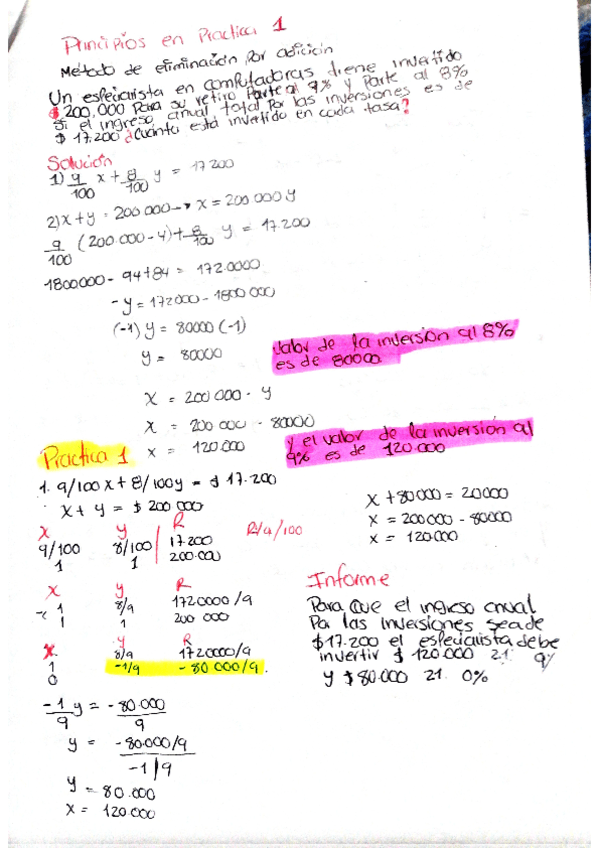 Principios en Practica 1
Método de eliminación por adición
Un especiarista en computadoras diene invertido
$200.000 Para su retiro Parte al 9% y Parte al 8%
Si el ingreso anual total Por las inversiones es de
$ 17.200 ¿Cuánta está invertido en cada tasa?
Solución
1) 9/100 x + 8/100 y = 17 200
2) x + y = 200 000 → x = 200 000 y
9/100 (200.000 - y) + 8/100 y = 17.200
1800000 - 9y + 8y = 172.0000
- y = 172000 - 1800 000
(-1) y = 80000 (-1)
y = 80000
Valor de la inversión al 8%
es de 80000
x = 200 000 - y
x = 200 000 - 80000
x = 120.000
y el valor de la inversión al
9% es de 120.000
Practica 1
1. 9/100 x + 8/100 y = $ 17.200
x + y = $ 200 000
x y R
9/100 8/100 17.200 R1/9/100
1 1 200.000
x y R
1 8/9 1720000/9
1 1 200 000
x y R
1 8/9 1720000/9
0 -1/9 - 80 000/9
-1/9 y = -80.000/9
y = -80.000/9 / -1/9
y = 80.000
x = 120.000
x + 80000 = 20000
x = 200000 - 80000
x = 120.000
Informe
Para que el ingreso anual
Por las inversiones sea de
$17.200 el especiarista debe
invertir $ 120.000 21. 9%
y $ 80.000 21 0%